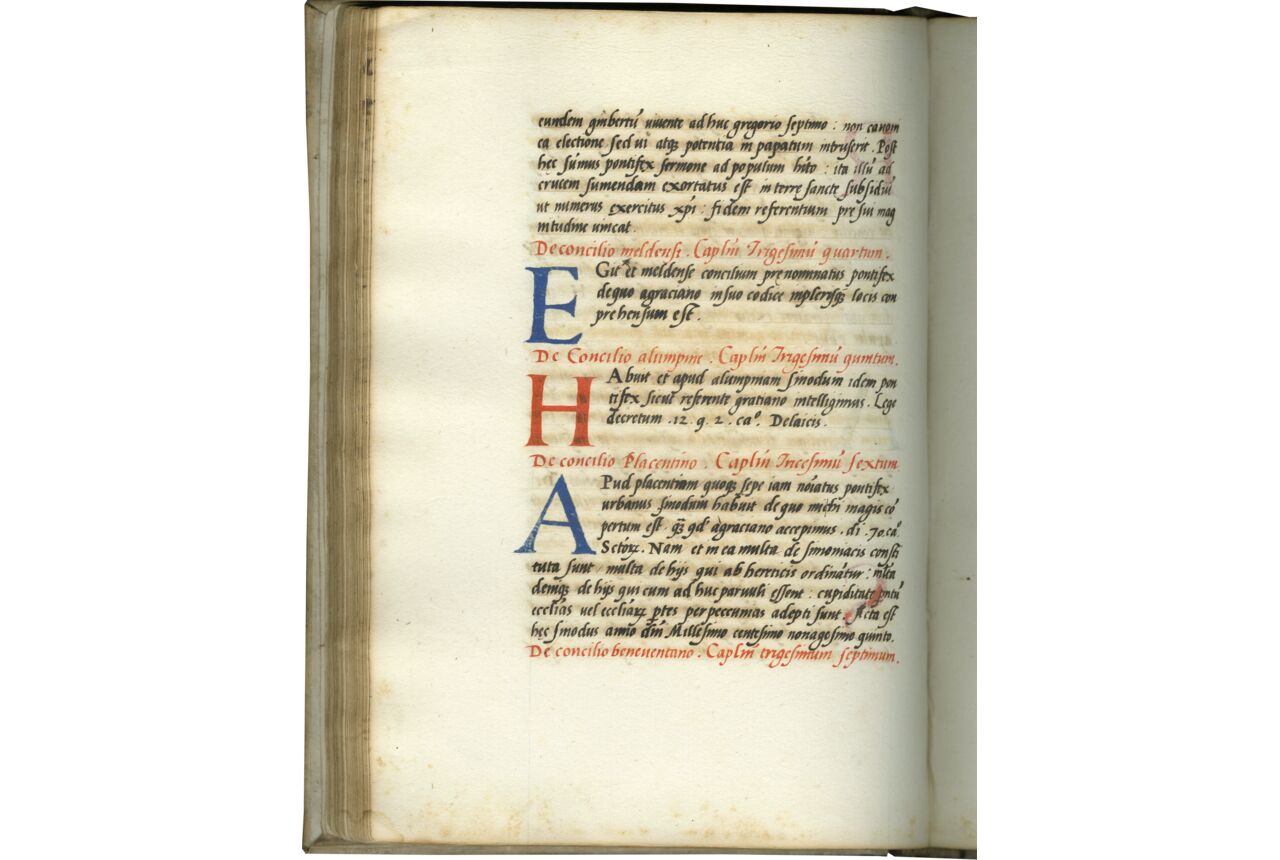 eundem ginbertū vivente ad huc gregorio septimo : non canoni
ca electione sed vi atqꝫ potentia in papatum intruserit . Post
hec sumus pontifex sermone ad populum hito : ita illū ad
crucem sumendam exortatus est in terrę sancte subsidiū
ut numerus exercitus xp̄i : fidem referentium pre sui mag
nitudine vincat .
De concilio meldensi . Caplm̄ Trigesimū quartum .
EGit et meldense concilium prenominatus pontifex
de quo agraciano in suo codice in plerisqꝫ locis con
prehensum est .
De Concilio alumpine . Caplm̄ Trigesimū quintum .
HAbuit et apud alumpniam sinodum idem pon
tifex sicut referente gratiano intelligimus . Lege
decretum . 12 . q . 2 . caº . Delaicis .
De concilio Placentino . Caplm̄ Tricesimū sextum
APud placentiam quoqꝫ sepe iam noiatus pontifex
urbanus sinodum habuit de quo michi magis cō
pertum est qꝫ qd' agraciano accepimus . di . 70 . caº
Sctōrꝝ . Nam et in ea multa de simoniacis consti
tuta sunt multa de hijs qui ab hereticis ordinātur : mlta
deniqꝫ de hijs qui cum ad huc parvuli essent : cupiditate
ecclias vel eccliarꝝ ptes per peccunias adepti sunt . Acta est
hec sinodus anno dm̄ Millesimo centesimo nonagesimo quinto .
De concilio beneventano . Caplm̄ trigesimum septimum .